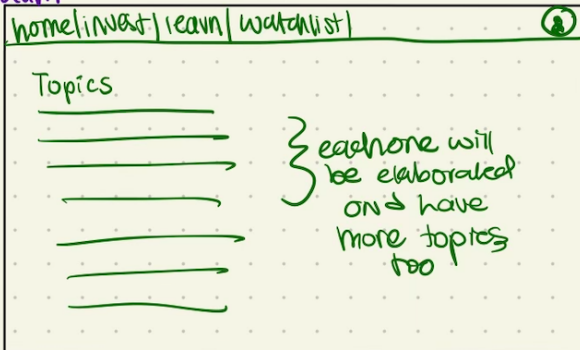 home|invest|learn|watchlist|
Topics
each one will
be elaborated
on & have
more topics
too